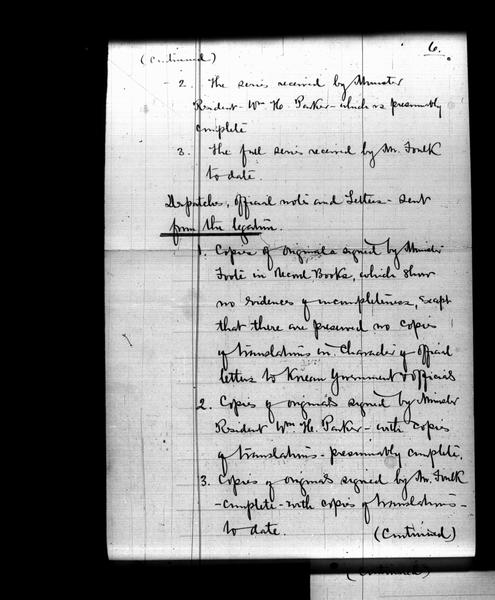 6.
(Continued)
- 2. The series received by Minister
Resident Wm H. Parker - which is presumably
complete
3. The full series received by Mr. Foulk
to date.
Despatches, official notes and Letters - sent
from the legation.
1. Copies of originals signed by Minister
Foote in Record Books, which show
no evidences of incompleteness, except
that there are preserved no copies
of translations in Character of official
letters to Korean Government & officials
2. Copies of originals signed by Minister
Resident Wm H. Parker - with copies
of translations - presumably complete.
3. Copies of originals signed by Mr. Foulk
- complete - with copies of translations -
to date.
(Continued)
(Continued)